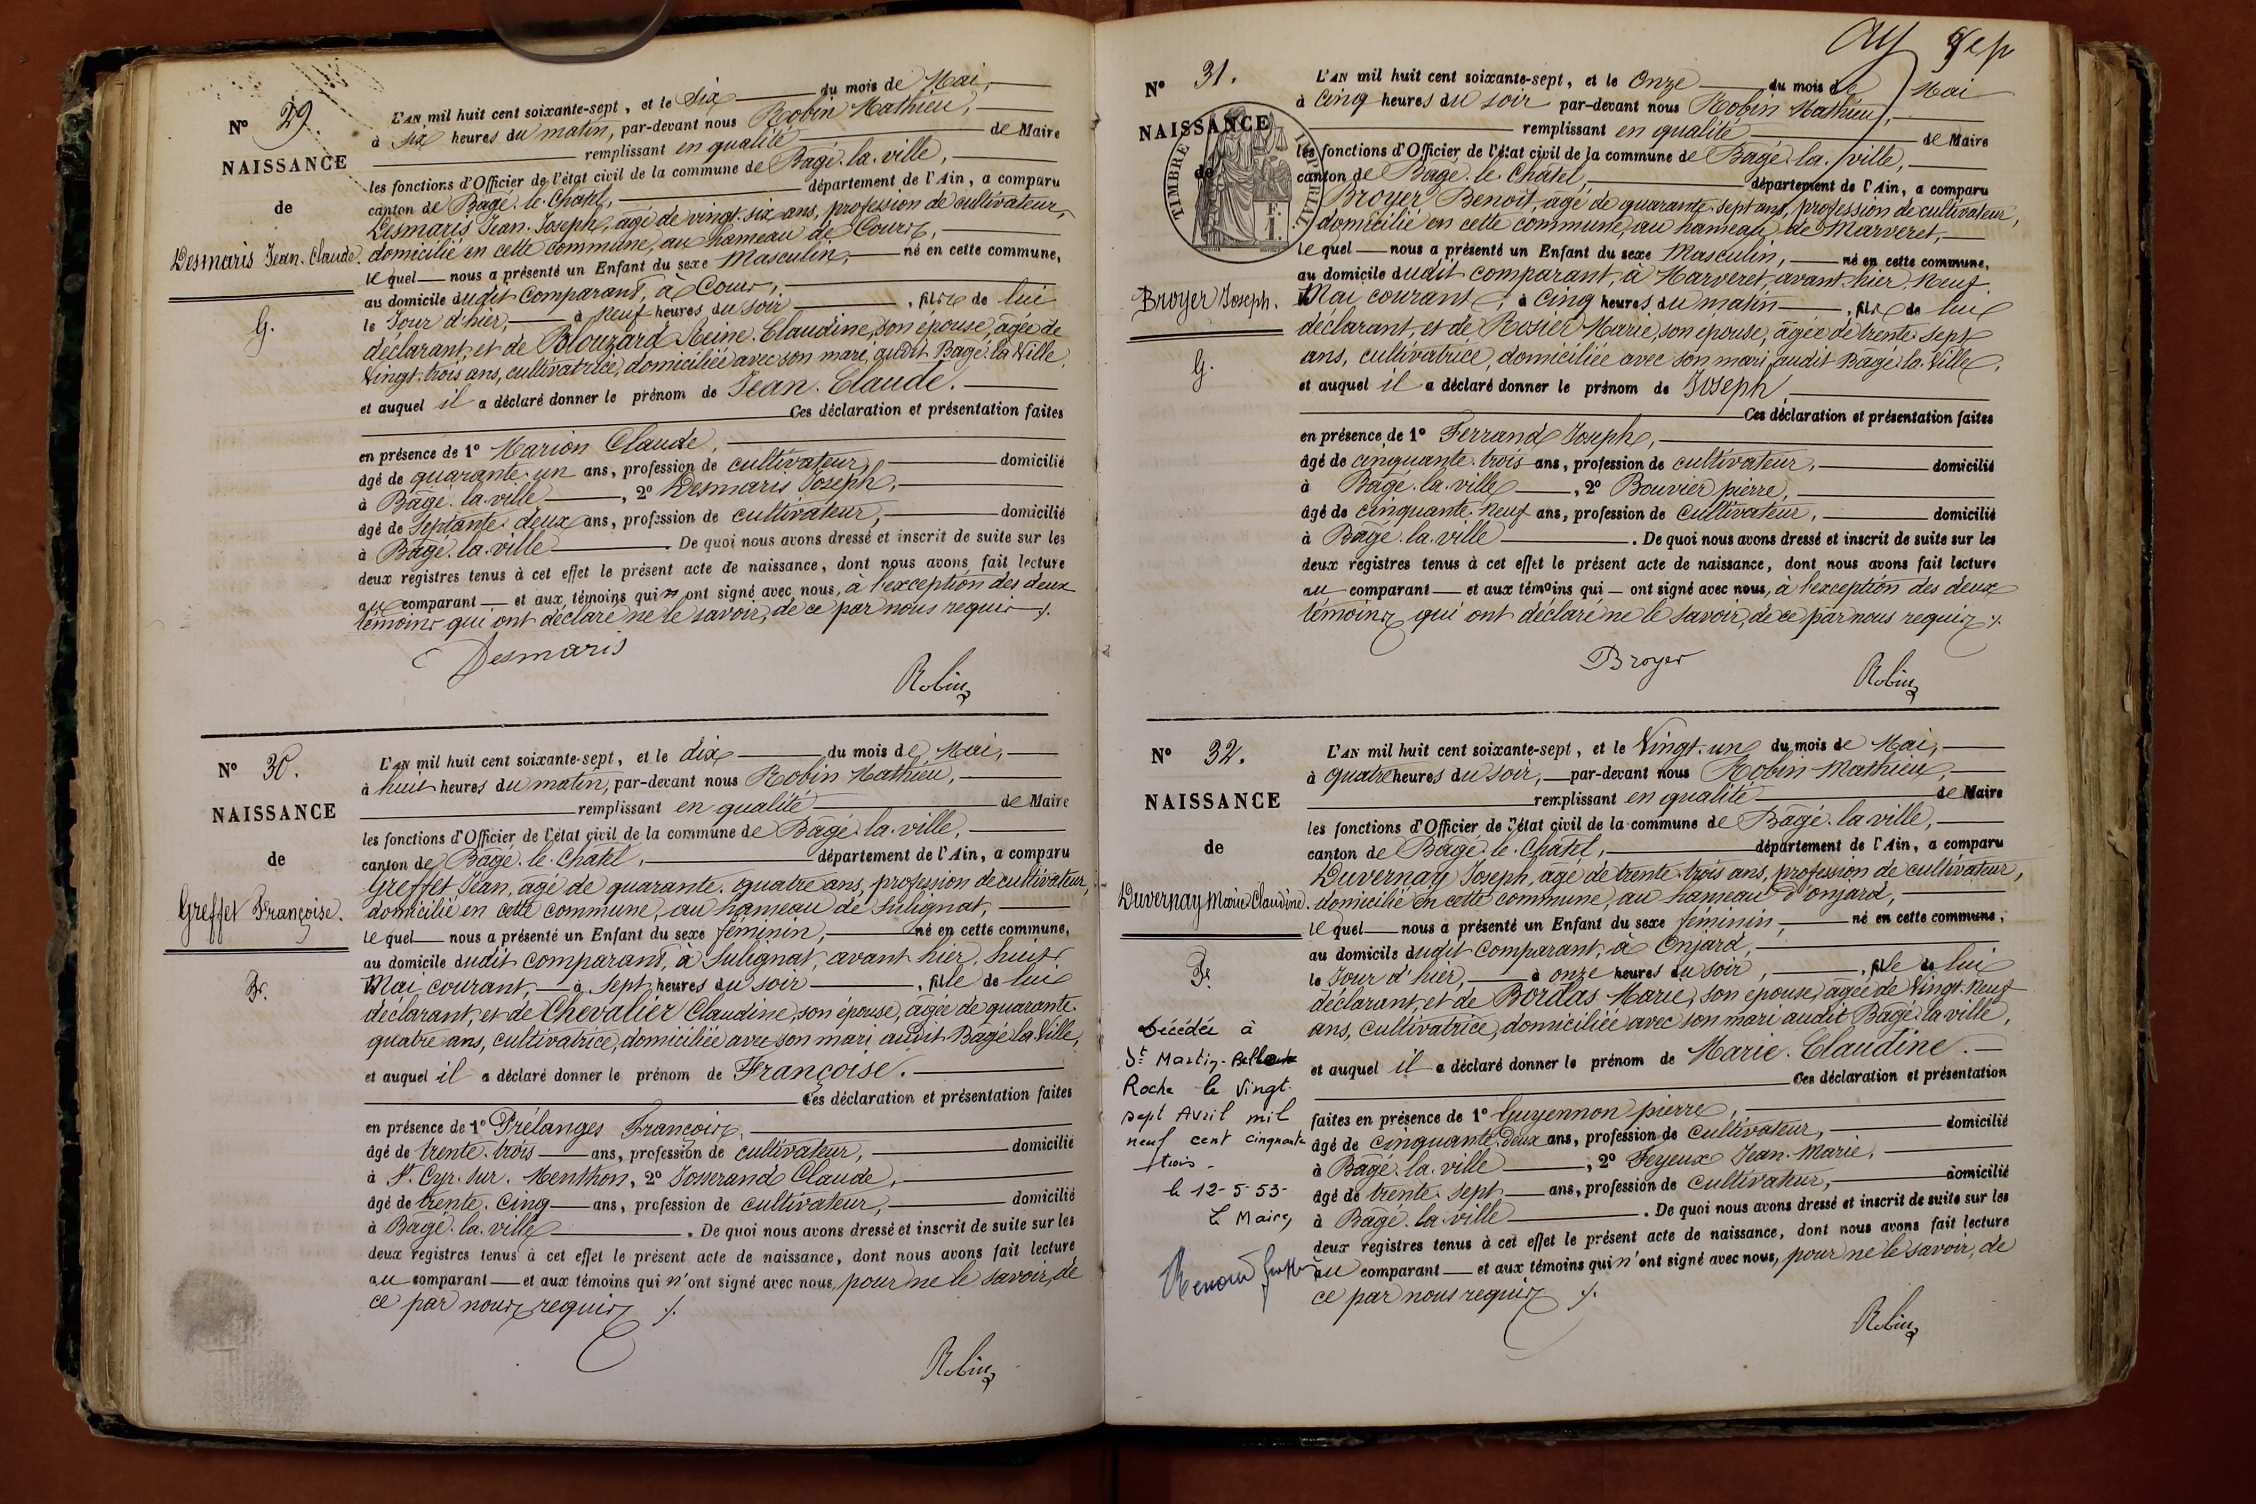 N° 29.
NAISSANCE
de
Desmaris Jean. Claude.
G.
L'AN mil huit cent soixante-sept, et le Six du mois de Mai,
à six heures du matin, par-devant nous Robin Mathieu,
remplissant en qualité de Maire
les fonctions d'Officier de l'état civil de la commune de Bagé. la. ville,
canton de Bagé. le. Chatel, département de l'Ain, a comparu
Desmaris Jean. Joseph, agé de vingt. six ans, profession de cultivateur,
domicilié en cette commune, au hameau de Cours,
le quel nous a présenté un Enfant du sexe Masculin, né en cette commune,
au domicile dudit Comparant, à Cours,
le Jour d'hier, à neuf heures du soir, fils de lui
déclarant, et de Blouzard Reine. Claudine, son épouse, agée de
Vingt. trois ans, cultivatrice, domiciliée avec son mari, audit Bagé. la Ville,
et auquel il a déclaré donner le prénom de Jean. Claude.
Ces déclaration et présentation faites
en présence de 1° Marion Claude,
âgé de quarante. un ans, profession de cultivateur, domicilié
à Bagé. la. ville, 2° Desmaris Joseph,
âgé de Septante. deux ans, profession de cultivateur, domicilié
à Bagé. la. ville. De quoi nous avons dressé et inscrit de suite sur les
deux registres tenus à cet effet le présent acte de naissance, dont nous avons fait lecture
au comparant et aux témoins qui ont signé avec nous, à l'exception des deux
témoins qui ont déclaré ne le savoir, de ce par nous requis ./.
Desmaris
Robin
N° 30.
NAISSANCE
de
Greffet Françoise.
F.
L'AN mil huit cent soixante-sept, et le dix du mois de Mai,
à huit heures du matin, par-devant nous Robin Mathieu,
remplissant en qualité de Maire
les fonctions d'Officier de l'état civil de la commune de Bagé. la. ville,
canton de Bagé. le. Chatel, département de l'Ain, a comparu
Greffet Jean, agé de quarante. quatre ans, profession de cultivateur,
domicilié en cette commune, au hameau de Sulignat,
le quel nous a présenté un Enfant du sexe féminin, né en cette commune,
au domicile dudit comparant, à Sulignat, avant hier, huit
Mai courant, à sept heures du soir, fille de lui
déclarant, et de Chevalier Claudine, son épouse, agée de quarante.
quatre ans, cultivatrice, domiciliée avec son mari audit Bagé la Ville,
et auquel il a déclaré donner le prénom de Françoise.
Ces déclaration et présentation faites
en présence de 1° Prélanges François,
âgé de trente. trois ans, profession de cultivateur, domicilié
à St. Cyr. sur. Menthon, 2° Josserand Claude,
âgé de trente. cinq ans, profession de cultivateur, domicilié
à Bagé. la. ville. De quoi nous avons dressé et inscrit de suite sur les
deux registres tenus à cet effet le présent acte de naissance, dont nous avons fait lecture
au comparant et aux témoins qui n'ont signé avec nous, pour ne le savoir, de
ce par nous requis ./.
Robin
N° 31.
NAISSANCE
de
TIMBRE IMPERIAL
Broyer Joseph.
G.
L'AN mil huit cent soixante-sept, et le Onze du mois de Mai
à Cinq heures du soir par-devant nous Robin Mathieu,
remplissant en qualité de Maire
les fonctions d'Officier de l'état civil de la commune de Bagé. la. ville,
canton de Bagé. le. Châtel, département de l'Ain, a comparu
Broyer Benoit, agé de quarante. sept ans, profession de cultivateur,
domicilié en cette commune, au hameau de Marveret,
le quel nous a présenté un Enfant du sexe Masculin, né en cette commune,
au domicile dudit comparant, à Marveret, avant. hier, neuf
Mai courant, à Cinq heures du matin, fils de lui
déclarant, et de Rosier Marie, son épouse, agée de trente. sept
ans, cultivatrice, domiciliée avec son mari, audit Bagé. la. Ville,
et auquel il a déclaré donner le prénom de Joseph
Ces déclaration et présentation faites
en présence de 1° Ferrand Joseph,
âgé de cinquante. trois ans, profession de cultivateur, domicilié
à Bagé. la. ville, 2° Bouvier pierre,
âgé de cinquante. neuf ans, profession de Cultivateur, domicilié
à Bagé. la. ville. De quoi nous avons dressé et inscrit de suite sur les
deux registres tenus à cet effet le présent acte de naissance, dont nous avons fait lecture
au comparant et aux témoins qui ont signé avec nous, à l'exception des deux
témoins qui ont déclaré ne le savoir, de ce par nous requis ./.
Broyer
Robin
N° 32.
NAISSANCE
de
Duvernay Marie Claudine.
F.
Décédée à
St Martin-Belle
Roche le Vingt.
sept Avril mil
neuf cent cinquante
trois -
le 12-5-53-
Le Maire,
L'AN mil huit cent soixante-sept, et le Vingt. un du mois de Mai,
à quatre heures du soir, par-devant nous Robin Mathieu,
remplissant en qualité de Maire
les fonctions d'Officier de l'état civil de la commune de Bagé. la ville,
canton de Bagé. le. Chatel, département de l'Ain, a comparu
Duvernay Joseph, agé de trente. trois ans, profession de cultivateur,
domicilié en cette commune, au hameau d'onjard,
le quel nous a présenté un Enfant du sexe féminin, né en cette commune,
au domicile dudit Comparant, à Onjard,
le Jour d'hier, à onze heures du soir, fille de lui
déclarant, et de Bordas Marie, son épouse, agée de Vingt. neuf
ans, cultivatrice, domiciliée avec son mari audit Bagé. la ville,
et auquel il a déclaré donner le prénom de Marie. Claudine.
Ces déclaration et présentation
faites en présence de 1° Guyennon pierre,
âgé de cinquante. deux ans, profession de Cultivateur, domicilié
à Bagé. la. ville, 2° Feyeux Jean. Marie,
âgé de trente. sept ans, profession de Cultivateur, domicilié
à Bagé. la. ville. De quoi nous avons dressé et inscrit de suite sur les
deux registres tenus à cet effet le présent acte de naissance, dont nous avons fait lecture
au comparant et aux témoins qui n'ont signé avec nous, pour ne le savoir, de
ce par nous requis ./.
Robin